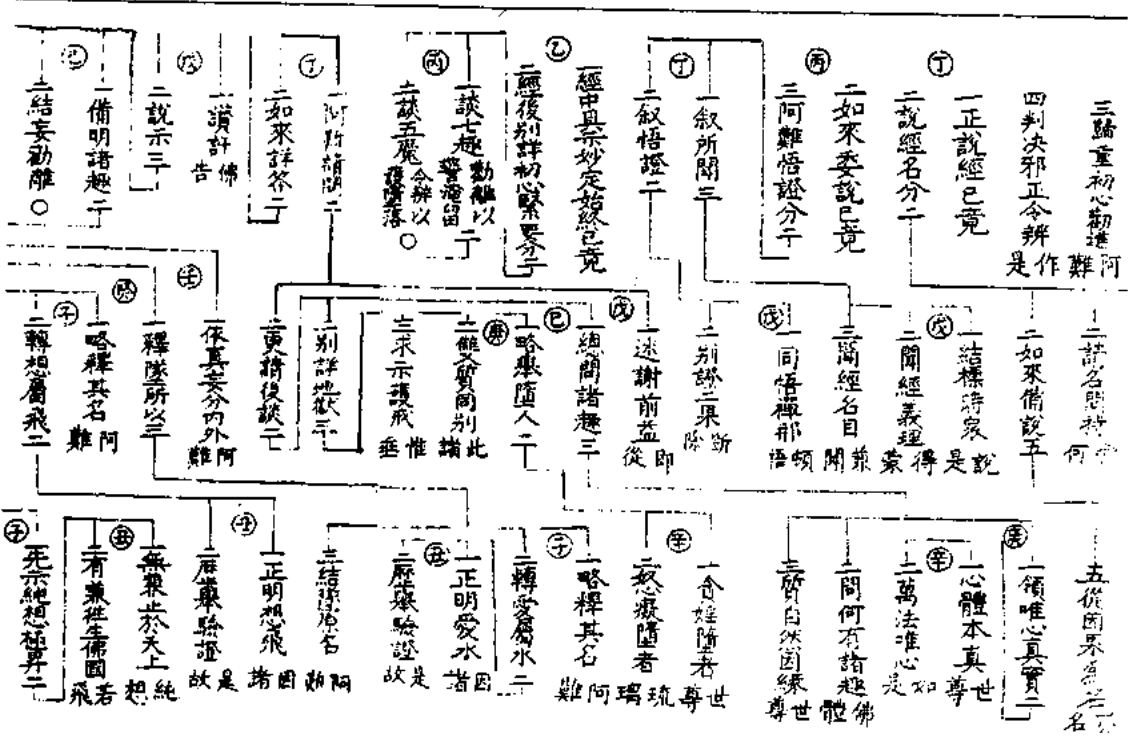 三騐重初心勸進阿難作是
四判决邪正令辨
丁
一正說經已竟
二說經名分二
丙
二如來委說已竟
三阿難悟證分二
丁
一叙所聞三
二叙悟證二
乙
一經中具示妙定始終已竟
二經後別詳初心緊要分二
丙
一談七趣勸離以警淹留二
二談五魔令辨以護墮落○
丁
一阿難請問二
二如來詳答二
戊
一讚許佛告
二說示三
己
一備明諸趣二
二結妄勸離○
二請名問持
二如來備說五
戊
一結標時衆說是
二聞經義理得蒙
三聞經名目兼聞
戊
一同悟禪那頓悟
二別證二果斷除
戊
一述謝前益即從
二更請後談二
己
一總問諸趣三
二別詳地獄三
庚
一略舉墮人二
二雙質同別此諸
三求示護戒惟垂
壬
依真妄分內外阿難
癸
一釋墜所以三
子
一略釋其名阿難
二轉想屬飛二
五從因果為名
庚
一領唯心真實二
辛
一心體本真世尊
二萬法唯心如是
二問何有諸趣佛體
三質自然因緣世尊
辛
一貪婬墮者世尊
二怒癡墮者琉璃
子
一略釋其名阿難
二轉愛屬水二
丑
一正明愛水因諸
二歷舉驗證是故
三結墜原名阿難
丑
一正明想飛因諸
二歷舉驗證是故
丑
一無兼止於天上純想
二有兼往生佛國若飛
子